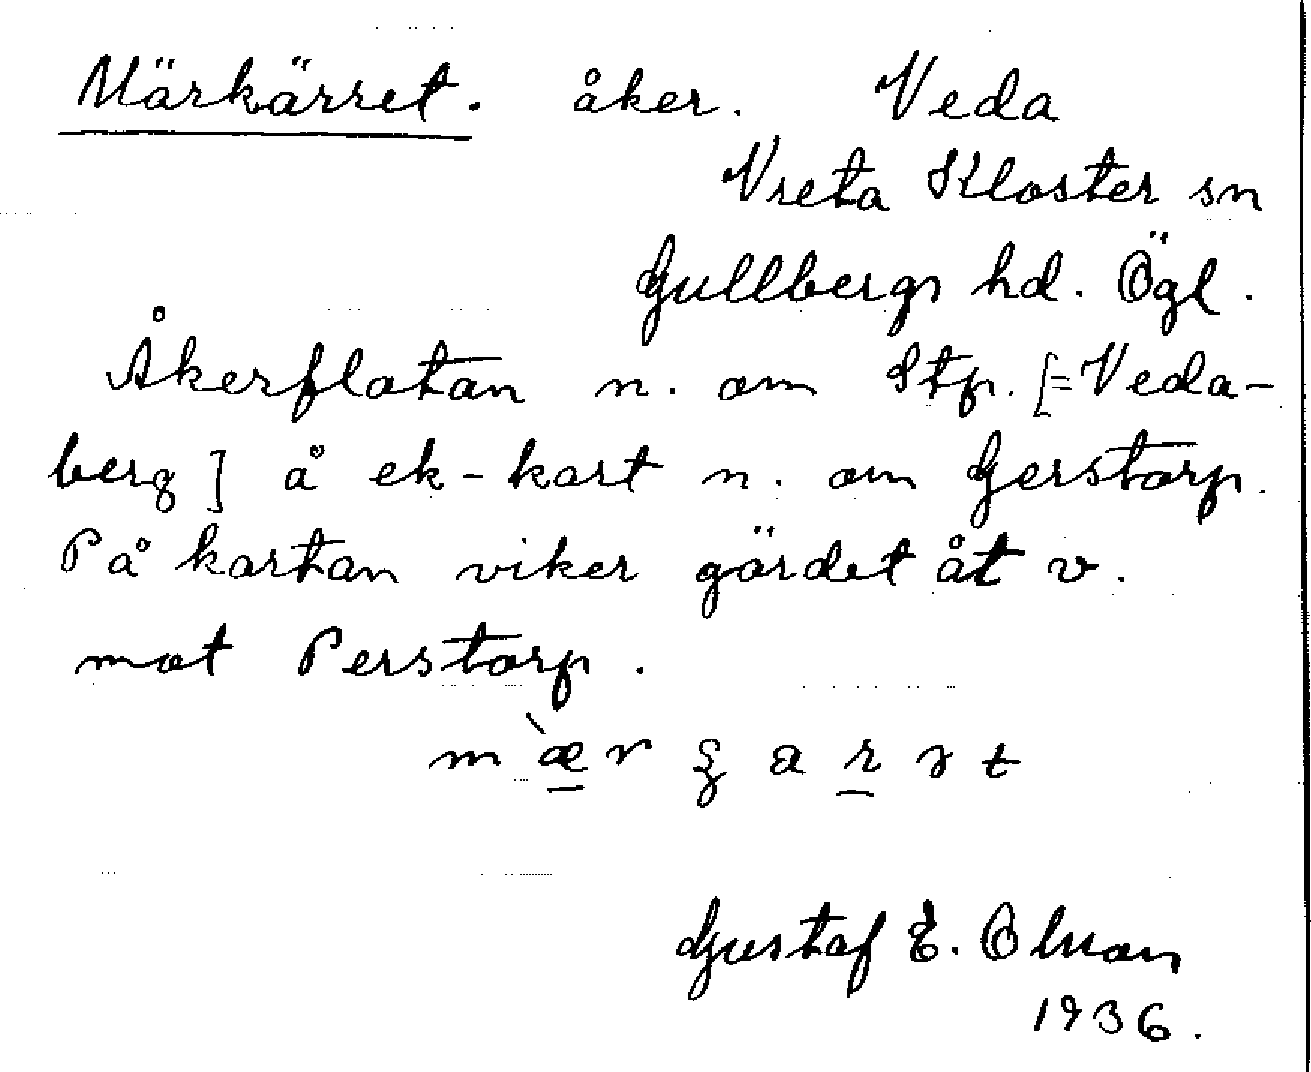 Märkärret. åker. Veda
Vreta Kloster sn
Gullbergs hd. Ögl.
Åkerflatan n. om Stp. [=Veda-
berg] å ek-kart n. om Gerstorp.
På kartan viker gärdet åt v.
mot Perstorp.
Gustaf E. Olman
1936.